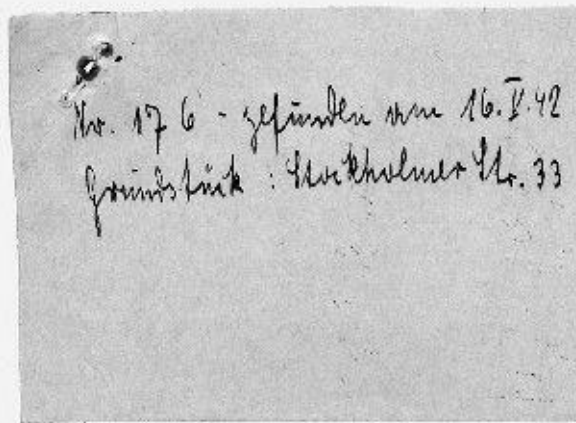 Nr. 176 - gefunden am 16.V.42
Grundstück : Stockholmer Str. 33